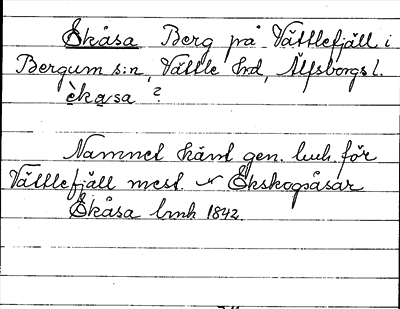 Ekåsa Berg på Vättlefjäll i
Bergum s:n, Vättle hrd, Älfsborgs l.
èkasa ?
Namnet känt gen. luh. för
Vättlefjäll mest. Ekskogsåsar
Ekåsa lmk 1842.